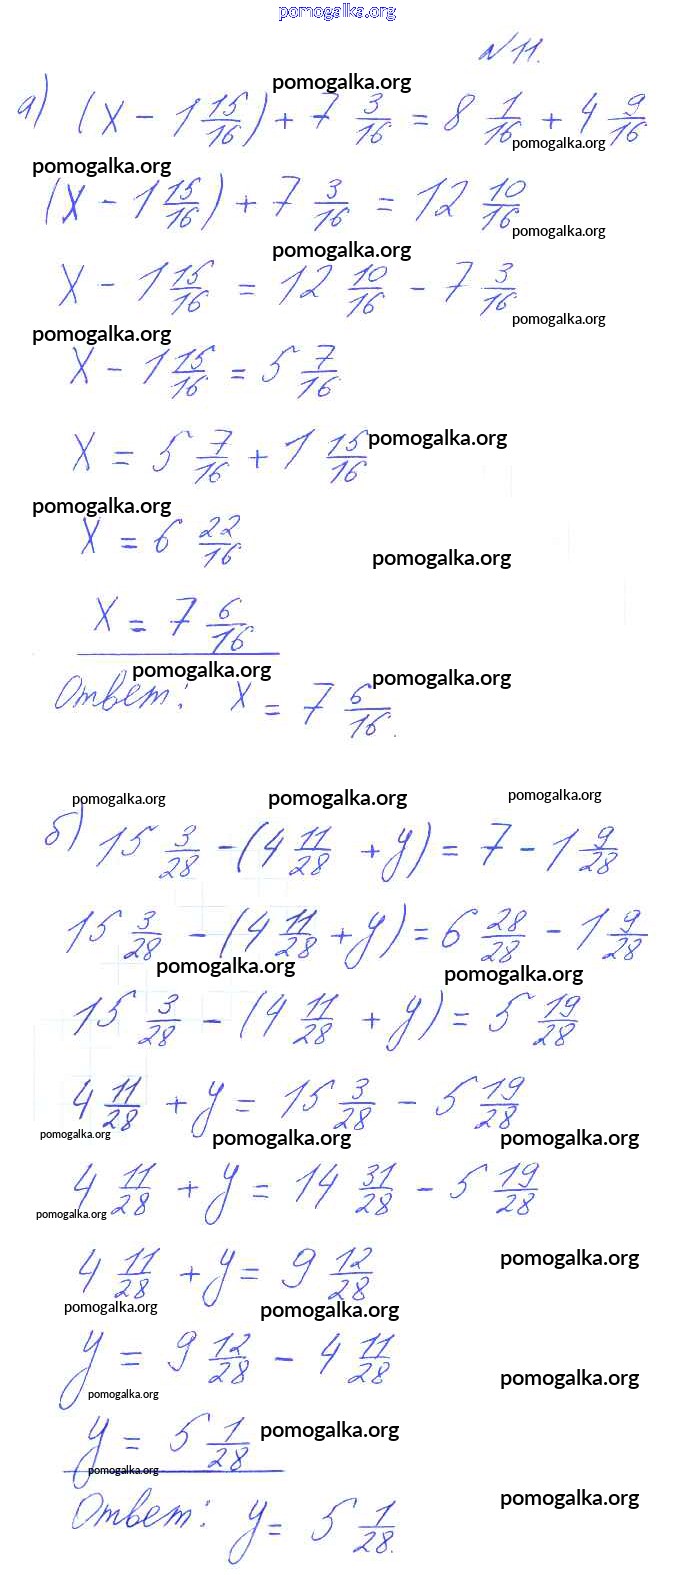 pomogalka.org
№11.
а) (x - 1 15/16) + 7 3/16 = 8 1/16 + 4 9/16
pomogalka.org
pomogalka.org
pomogalka.org
(x - 1 15/16) + 7 3/16 = 12 10/16
pomogalka.org
pomogalka.org
x - 1 15/16 = 12 10/16 - 7 3/16
pomogalka.org
pomogalka.org
x - 1 15/16 = 5 7/16
x = 5 7/16 + 1 15/16
pomogalka.org
pomogalka.org
x = 6 22/16
pomogalka.org
x = 7 6/16
pomogalka.org
pomogalka.org
Ответ: x = 7 6/16.
pomogalka.org
pomogalka.org
pomogalka.org
б) 15 3/28 - (4 11/28 + y) = 7 - 1 9/28
15 3/28 - (4 11/28 + y) = 6 28/28 - 1 9/28
pomogalka.org
pomogalka.org
15 3/28 - (4 11/28 + y) = 5 19/28
4 11/28 + y = 15 3/28 - 5 19/28
pomogalka.org
pomogalka.org
pomogalka.org
4 11/28 + y = 14 31/28 - 5 19/28
pomogalka.org
pomogalka.org
4 11/28 + y = 9 12/28
pomogalka.org
pomogalka.org
y = 9 12/28 - 4 11/28
pomogalka.org
pomogalka.org
y = 5 1/28
pomogalka.org
pomogalka.org
Ответ: y = 5 1/28.
pomogalka.org